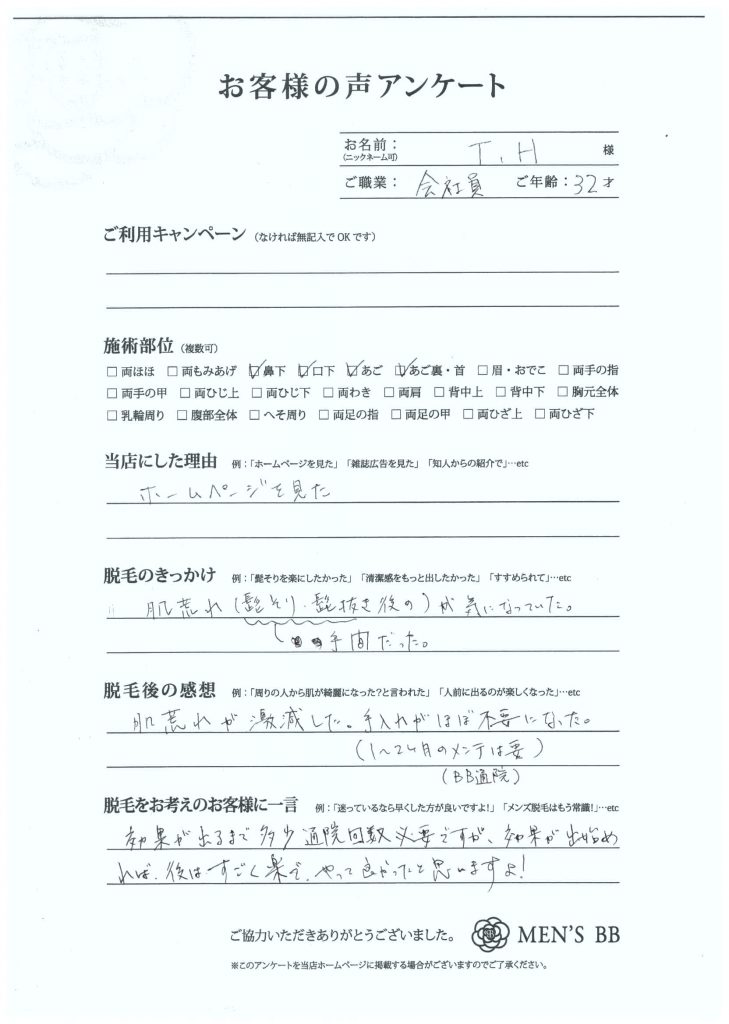 お客様の声アンケート
お名前：
(ニックネーム可)
T.H 様
ご職業： 会社員 ご年齢：32才
ご利用キャンペーン （なければ無記入でOKです）
施術部位（複数可）
□ 両ほほ □ 両もみあげ ☑ 鼻下 ☑ 口下 ☑ あご ☑ あご裏・首 □ 眉・おでこ □ 両手の指
□ 両手の甲 □ 両ひじ上 □ 両ひじ下 □ 両わき □ 両肩 □ 背中上 □ 背中下 □ 胸元全体
□ 乳輪周り □ 腹部全体 □ へそ周り □ 両足の指 □ 両足の甲 □ 両ひざ上 □ 両ひざ下
当店にした理由 例：「ホームページを見た」「雑誌広告を見た」「知人からの紹介で」…etc
ホームページを見た
脱毛のきっかけ 例：「髭そりを楽にしたかった」「清潔感をもっと出したかった」「すすめられて」…etc
肌荒れ（髭そり・髭抜き後の）が気になっていた。
手間だった。
脱毛後の感想 例：「周りの人から肌が綺麗になった？と言われた」「人前に出るのが楽しくなった」…etc
肌荒れが激減した。手入れがほぼ不要になった。
（1〜2ヶ月のメンテは要）
（BB通院）
脱毛をお考えのお客様に一言 例：「迷っているなら早くした方が良いですよ！」「メンズ脱毛はもう常識！」…etc
効果が出るまで多少通院回数必要ですが、効果が出始め
れば、後はすごく楽で、やって良かったと思いますよ！
ご協力いただきありがとうございました。 MEN'S BB
※このアンケートを当店ホームページに掲載する場合がございますのでご了承ください。